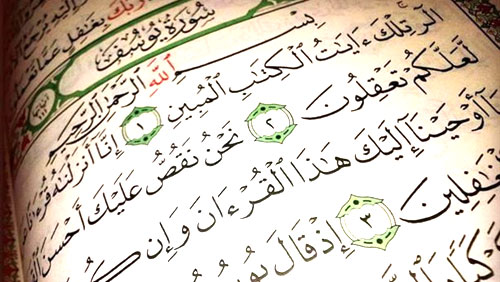 بِغَٰفِلٍ عَمَّا
سُورَةُ يُوسُفَ
بِسْمِ ٱللَّهِ ٱلرَّحْمَٰنِ ٱلرَّحِيمِ
الٓر تِلْكَ ءَايَٰتُ ٱلْكِتَٰبِ ٱلْمُبِينِ ١ إِنَّآ أَنزَلْنَٰهُ
لَّعَلَّكُمْ تَعْقِلُونَ ٢ نَحْنُ نَقُصُّ عَلَيْكَ أَحْسَنَ
أَوْحَيْنَآ إِلَيْكَ هَٰذَا ٱلْقُرْءَانَ وَإِن
ٱلْغَٰفِلِينَ ٣ إِذْ قَالَ